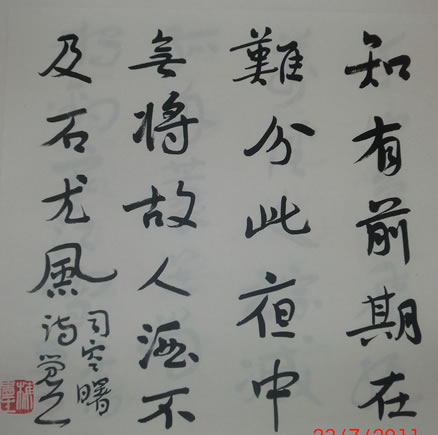 知有前期在
難分此夜中
無將故人酒不
及石尤風
司空曙
诗
22/7/2011